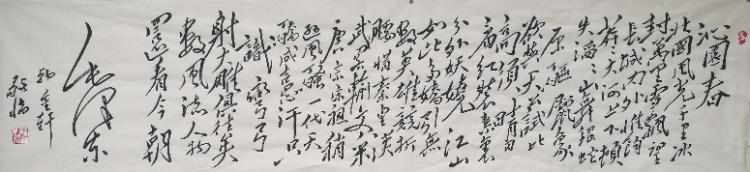 沁园春
北国风光千里冰
封万里雪飘望
长城内外惟余
莽莽大河上下顿
失滔滔山舞银蛇
原驰蜡象
欲与天公试比
高须晴日看
红装素裹
分外妖娆江山
如此多娇引无
数英雄竞折
腰惜秦皇汉
武略输文采
唐宗宗祖稍
逊风骚一代天
骄成吉思汗只
识弯弓
射大雕俱往矣
数风流人物
还看今朝
毛泽东
敬临